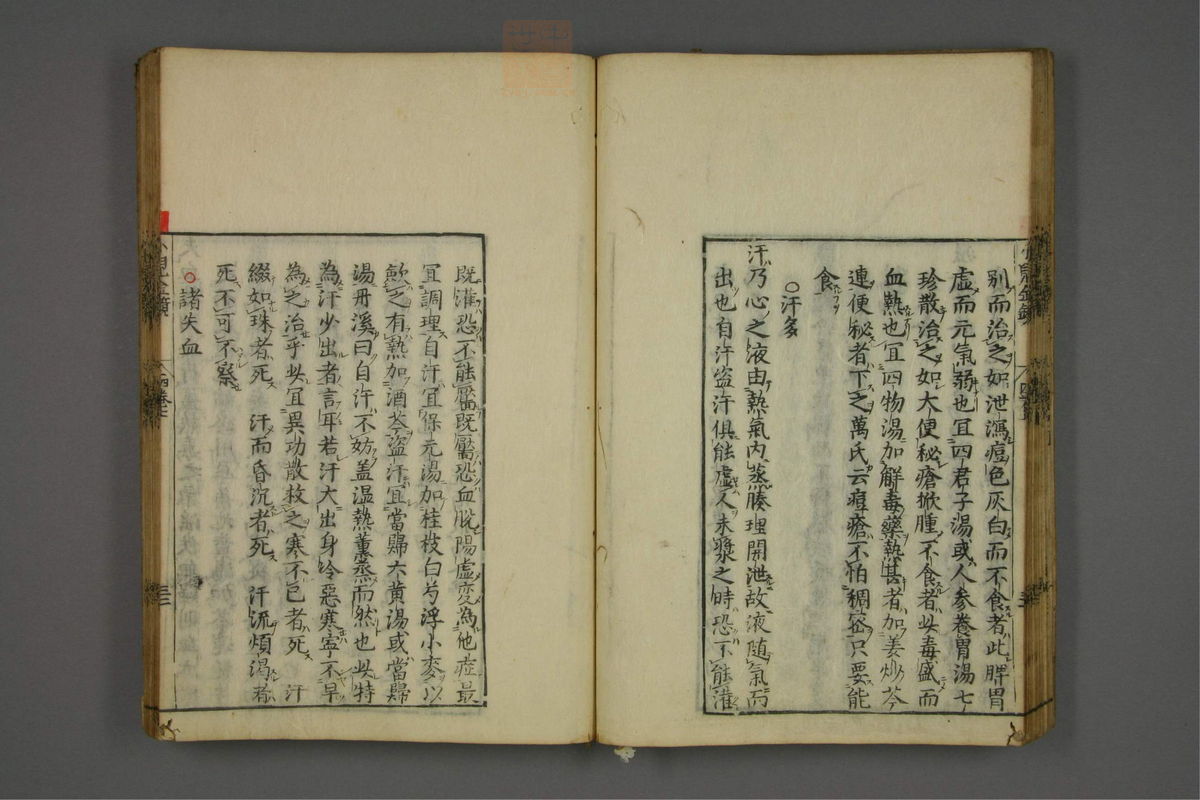 別而治之如泄瀉痘色灰白而不食者此脾胃
虛而元氣弱也宜四君子湯或人参養胃湯七
珍散治之如大便秘瘡掀腫不食者此毒盛而
血熱也宜四物湯加解毒藥熱甚者加姜炒芩
連便秘者下之萬氏云痘瘡不怕稠密只要能
食
○汗多
汗乃心之液由熱氣內蒸腠理開泄故液随氣而
出也自汗盗汗俱能虛人未漿之時恐不能灌
既灌恐不能靨既靨恐血脫陽虛変為他症最
宜調理自汗宜保元湯加桂枝白芍浮小麥以
斂之有熱加酒芩盗汗宜當歸六黄湯或當歸
湯丹溪曰自汗不妨盖温熱薰蒸而然也此特
為汗少出者言耳若汗大出身冷惡寒寧不早
為之治乎此宜異功散救之寒不已者死 汗
綴如珠者死 汗而昏沉者死 汗流煩渴者
死不可不察
○諸失血